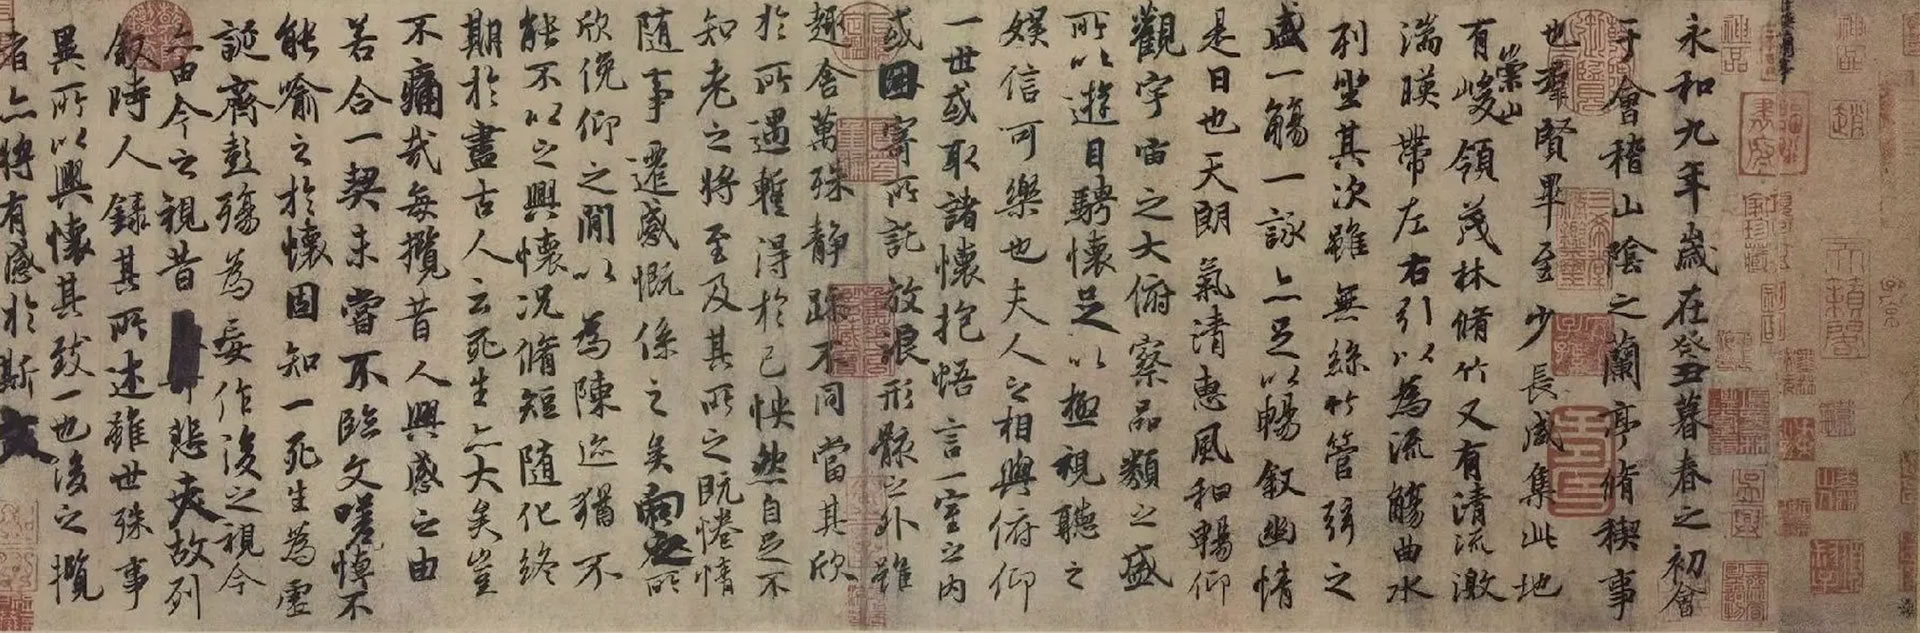 永和九年歲在癸丑暮春之初會
于會稽山陰之蘭亭脩稧事
也羣賢畢至少長咸集此地
有崇山峻領茂林脩竹又有清流激
湍暎帶左右引以為流觴曲水
列坐其次雖無絲竹管弦之
盛一觴一詠亦足以暢叙幽情
是日也天朗氣清惠風和暢仰
觀宇宙之大俯察品類之盛
所以遊目騁懷足以極視聽之
娛信可樂也夫人之相與俯仰
一世或取諸懷抱悟言一室之內
或因寄所託放浪形骸之外雖
趣舍萬殊静躁不同當其欣
於所遇暫得於己怏然自足不
知老之將至及其所之既惓情
随事遷感慨係之矣向之所
欣俛仰之閒以為陳迹猶不
能不以之興懷況脩短随化終
期於盡古人云死生亦大矣豈
不痛哉每攬昔人興感之由
若合一契未嘗不臨文嗟悼不
能喻之於懷固知一死生為虛
誕齊彭殤為妄作後之視今
亦由今之視昔悲夫故列
叙時人錄其所述雖世殊事
異所以興懷其致一也後之攬
者亦將有感於斯文